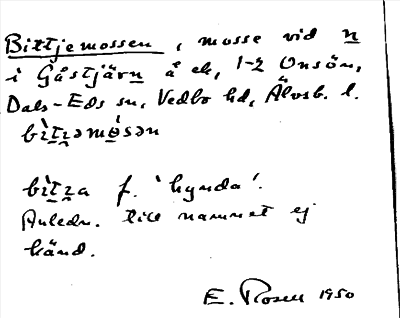 Bittjemossen, mosse vid n
i Gåstjärn å ek, 1-2 Onsön,
Dals-Eds sn, Vedbo hd, Älvsb. l.
bìtʒəmósən
bìtʒa f. 'hynda'.
Anledn. till namnet ej
känd.
E. Rosell 1950